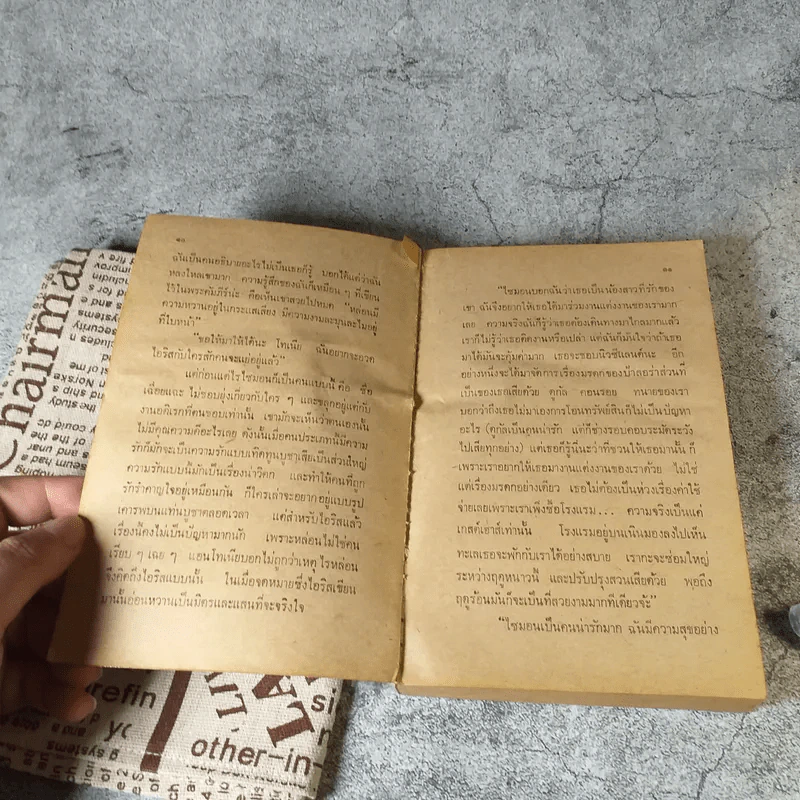 ๑๐
ฉันเป็นคนอธิบายอะไรไม่เป็นเธอก็รู้ บอกได้แต่ว่าฉัน
หลงใหลเขามาก ความรู้สึกของฉันก็เหมือน ๆ ที่เขียน
ไว้ในพระคัมภีร์น่ะ คือเห็นเขาสวยไปหมด “หล่อนมี
ความหวานอยู่ในกระแสเสียง มีความงามละมุนละไมอยู่
ที่ใบหน้า”
“ขอให้มาให้ได้นะ โทเนีย ฉันอยากจะอวด
ไอริสกับใครสักคนจะแย่อยู่แล้ว”
แต่ก่อนแต่ไรไซมอนก็เป็นคนแบบนี้ คือ ซื่อ
เฉื่อยแฉะ ไม่ชอบยุ่งเกี่ยวกับใคร ๆ และขลุกอยู่แต่กับ
งานอดิเรกที่ตนชอบเท่านั้น เขามักจะเห็นว่าตนเองนั้น
ไม่มีคุณความดีอะไรเลย ดังนั้นเมื่อคนประเภทนี้มีความ
รักก็มักจะเป็นความรักแบบเทิดทูนบูชาเสียเป็นส่วนใหญ่
ความรักแบบนี้มักเป็นเรื่องน่าวิตก และทำให้คนที่ถูก
รักรำคาญใจอยู่เหมือนกัน ก็ใครเล่าจะอยากอยู่แบบรูป
เคารพบนแท่นบูชาตลอดเวลา แต่สำหรับไอริสแล้ว
เรื่องนี้คงไม่เป็นปัญหามากนัก เพราะหล่อนไม่ใช่คน
เรียบ ๆ เฉย ๆ แอนโทเนียบอกไม่ถูกว่าเหตุไรหล่อน
จึงคิดถึงไอริสแบบนั้น ในเมื่อจดหมายซึ่งไอริสเขียน
มานั้นอ่อนหวานเป็นมิตรและแสนที่จะจริงใจ
๑๑
“ไซมอนบอกฉันว่าเธอเป็นน้องสาวที่รักของ
เขา ฉันจึงอยากให้เธอได้มาร่วมงานแต่งงานของเรามาก
เลย ความจริงฉันก็รู้ว่าเธอต้องเดินทางมาไกลมากแล้ว
เราก็ไม่รู้ว่าเธอติดงานหรือเปล่า แต่ฉันก็มั่นใจว่าถ้าเธอ
มาได้มันจะคุ้มค่ามาก เธอจะชอบนิวซีแลนด์นะ อีก
อย่างหนึ่งจะได้มาจัดการเรื่องมรดกของป้าลอว่าส่วนที่
เป็นของเธอเสียด้วย ดูกัล คอนรอย ทนายของเรา
บอกว่าถึงเธอไม่มาเองการโอนทรัพย์สินก็ไม่เป็นปัญหา
อะไร (ดูกัลเป็นคนน่ารัก แต่ก็ช่างรอบคอบระมัดระวัง
ไปเสียทุกอย่าง) แต่เธอก็รู้นี่นะว่าที่ชวนให้เธอมานั้น ก็
เพราะเราอยากให้เธอมางานแต่งงานของเราด้วย ไม่ใช่
แต่เรื่องมรดกอย่างเดียว เธอไม่ต้องเป็นห่วงเรื่องค่าใช้
จ่ายเลยเพราะเราเพิ่งซื้อโรงแรม... ความจริงเป็นแค่
เกสต์เฮาส์เท่านั้น โรงแรมอยู่บนเนินมองลงไปเห็น
ทะเลเธอจะพักกับเราได้อย่างสบาย เรากะจะซ่อมใหญ่
ระหว่างฤดูหนาวนี้ และปรับปรุงสวนเสียด้วย พอถึง
ฤดูร้อนมันก็จะเป็นที่สวยงามมากทีเดียวจ้ะ”
“ไซมอนเป็นคนน่ารักมาก ฉันมีความสุขอย่าง
Chairman
other-in-